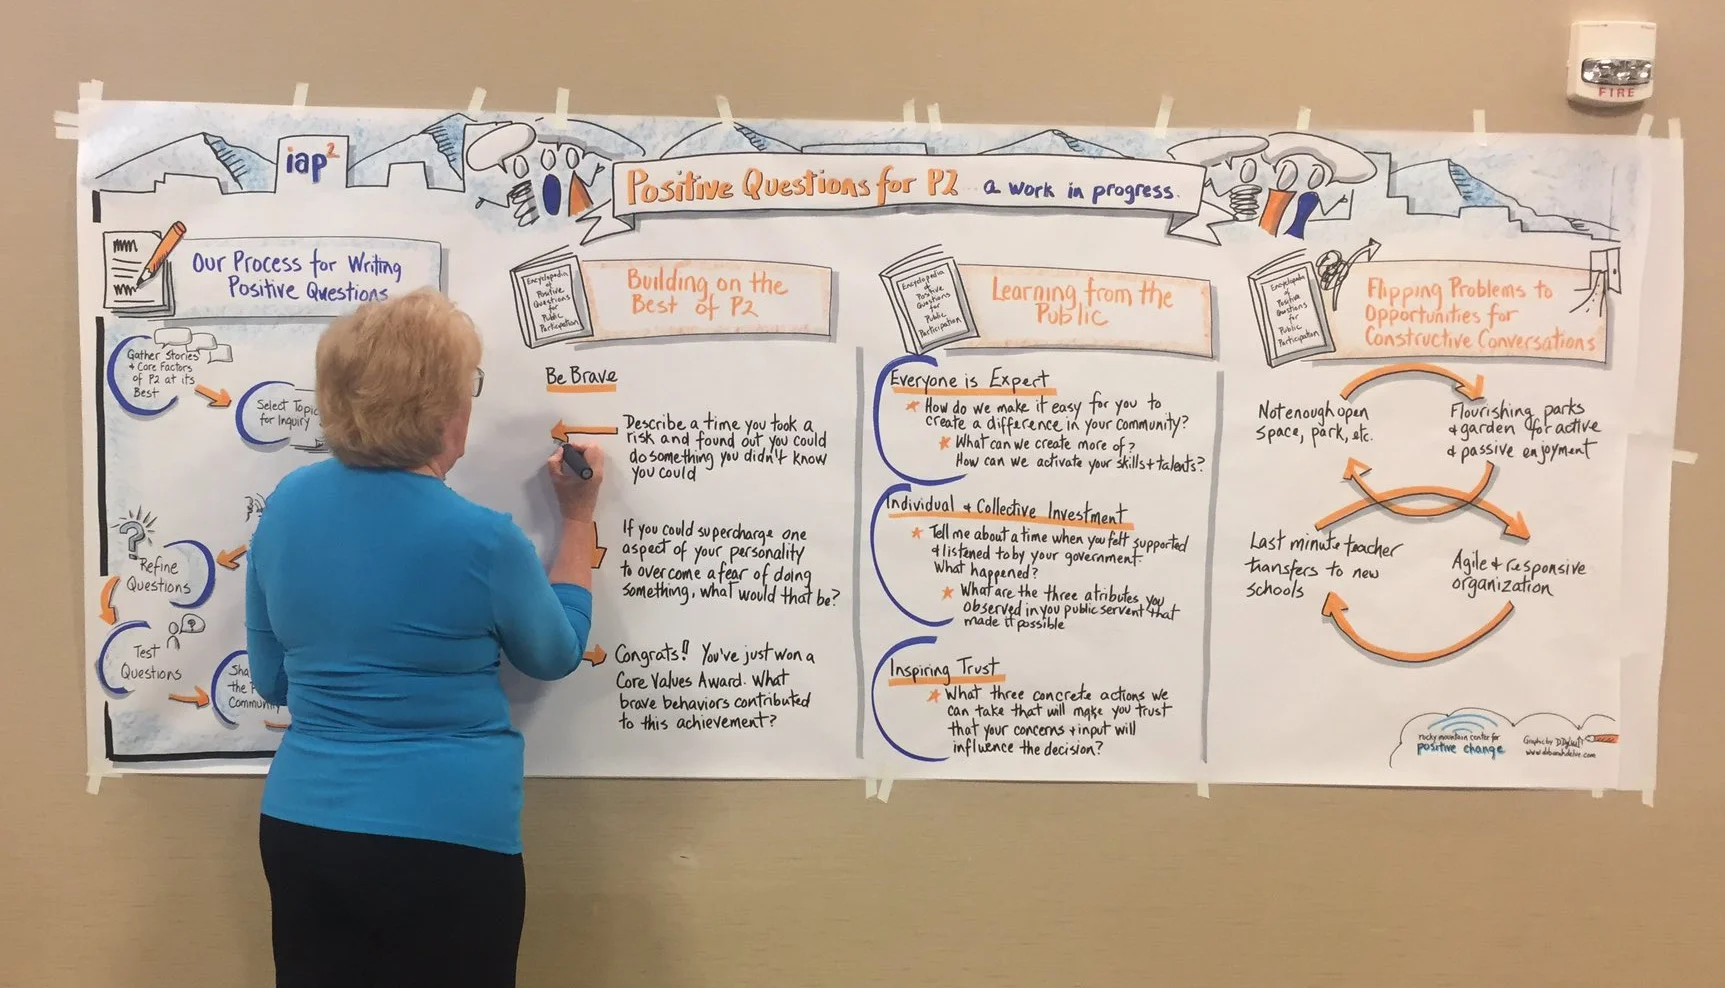 FIRE
iap2
Positive Questions for P2 a work in progress.
Our Process for Writing
Positive Questions
Gather Stories
+ Core Factors
of P2 at its
Best
Select Topic
for Inquiry
Refine
Questions
Test
Questions
Sha
the P
Community
Encyclopedia
of
Positive
Questions
for
Public
Participation
Building on the
Best of P2
Be Brave
Describe a time you took a
risk and found out you could
do something you didn't know
you could
If you could supercharge one
aspect of your personality
to overcome a fear of doing
something, what would that be?
Congrats! You've just won a
Core Values Award. What
brave behaviors contributed
to this achievement?
Encyclopedia
of
Positive
Questions
for
Public
Participation
Learning from the
Public
Everyone is Expert
How do we make it easy for you to
create a difference in your community?
What can we create more of?
How can we activate your skills + talents?
Individual + Collective Investment
Tell me about a time when you felt supported
+ listened to by your government.
What happened?
What are the three atributes you
observed in you public servent that
made it possible
Inspiring Trust
What three concrete actions we
can take that will make you trust
that your concerns + input will
influence the decision?
Encyclopedia
of
Positive
Questions
for
Public
Participation
Flipping Problems to
Opportunities for
Constructive Conversations
Not enough open
space, park, etc.
Flourishing parks
+ garden for active
+ passive enjoyment
Last minute teacher
transfers to new
schools
Agile + responsive
organization
rocky mountain center for
positive change
Graphic by